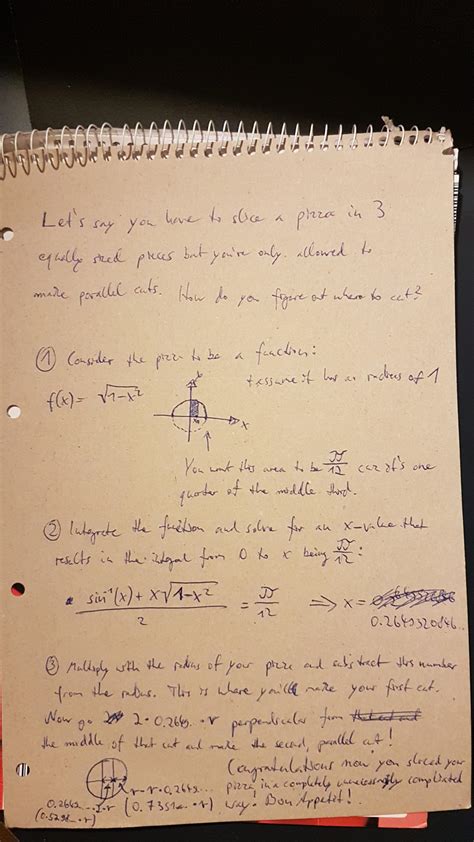 Let's say you have to slice a pizza in 3
equally sized pieces but you're only allowed to
make parallel cuts. How do you figure out where to cut?
① Consider the pizza to be a function:
f(x) = √1-x²
+ assume it has a radius of 1
x
You want this area to be π/12 cuz it's one
quarter of the middle third.
② Integrate the function and solve for an x-value that
results in the integral from 0 to x being π/12:
sin⁻¹(x) + x√1-x² / 2 = π/12 ⇒ x =
0.2649320846...
③ Multiply with the radius of your pizza and subtract this number
from the radius. This is where you'll make your first cut.
Now go 2·0.2649...·r perpendicular from
the middle of that cut and make the second, parallel cut!
Congratulations now you sliced your
pizza in a completely unnecessarily complicated
way! Bon Appetit!
r-r·0.2649...
(0.7351...·r)
0.2649...·2·r
(0.5298...·r)